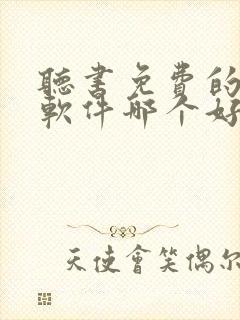 聽書免費的
軟件哪个好
天使會笑偶尔